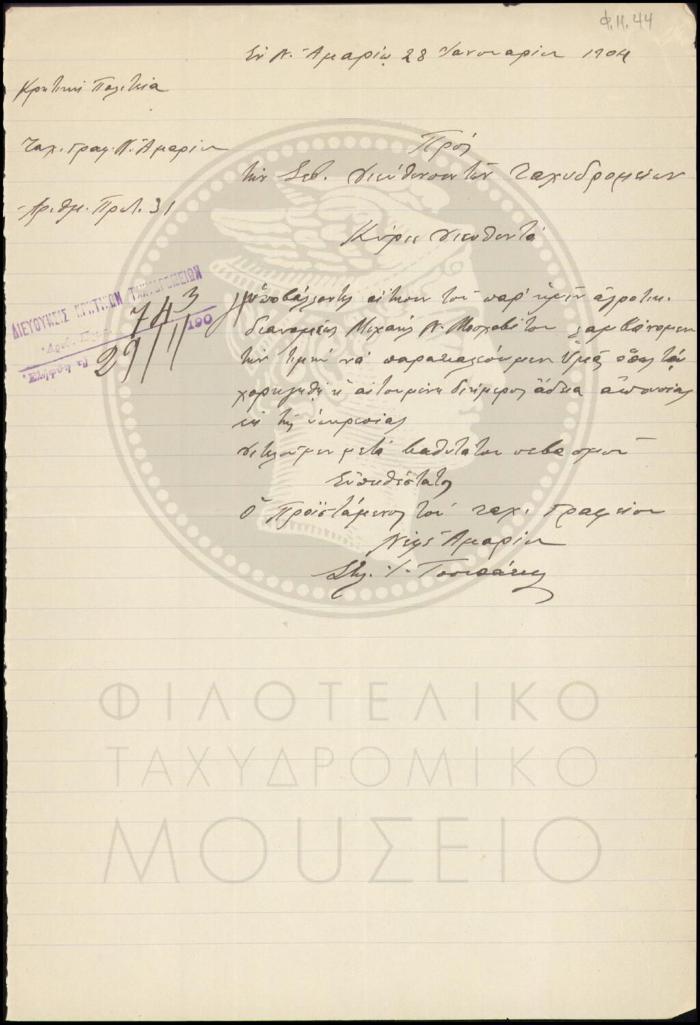 Φ.Π. 44
Ἐν Ν. Ἀμαρίῳ 28 Ἰανουαρίου 1904
Κρητική Πολιτεία
Ταχ. Γραφ. Ν. Ἀμαρίου
Ἀριθμ. Πρωτ. 31
Πρός
τήν Σεβ. Διεύθυνσιν τῶν Ταχυδρομείων
Κύριε Διευθυντά
ΔΙΕΥΘΥΝΣΙΣ ΚΡΗΤΙΚΩΝ ΤΑΧΥΔΡΟΜΕΙΩΝ
743
190
29/1
Ὑποβάλλοντες αἴτησιν τοῦ παρ' ἡμῖν ἀγροτικ.
διανομέως Μιχαήλ Ν. λαμβάνομεν
τήν τιμήν νά παρακαλέσωμεν Ὑμᾶς ὅπως τῷ
χορηγηθῇ ἡ αἰτουμένη διήμερος ἄδεια ἀπουσίας
ἐκ τῆς ὑπηρεσίας
Διατελοῦμεν μετά βαθυτάτου σεβασμοῦ
Εὐπειθέστατος
Ὁ Προϊστάμενος τοῦ ταχ. Γραφείου
Νέφς Ἀμαρίου
ΦΙΛΟΤΕΛΙΚΟ
ΤΑΧΥΔΡΟΜΙΚΟ
ΜΟΥΣΕΙΟ